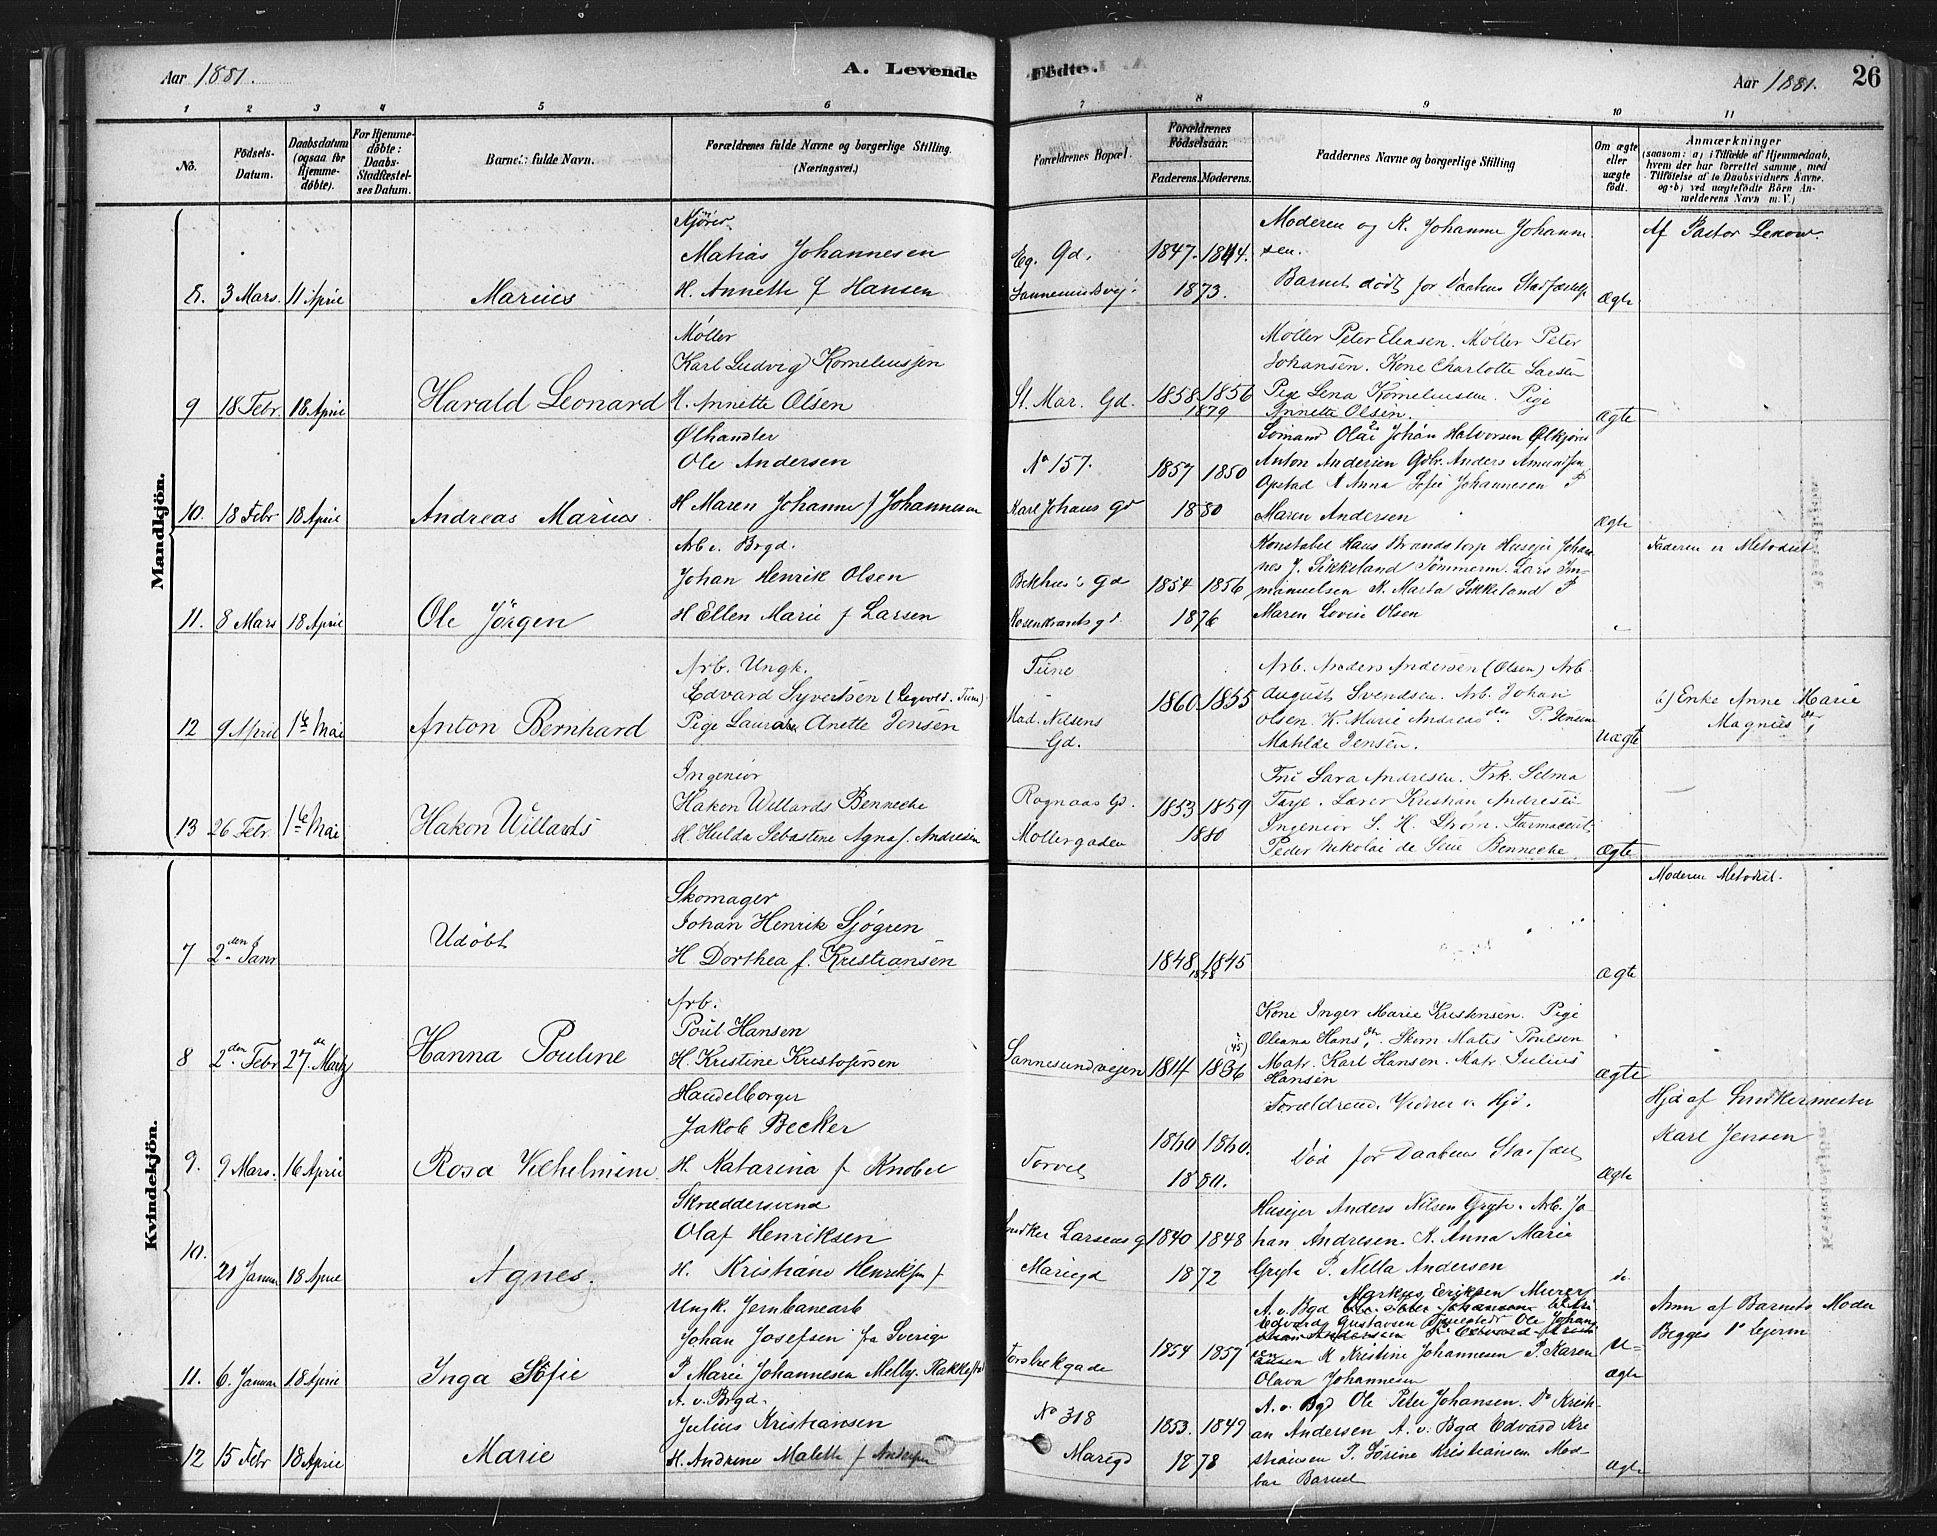 Aar 1881.
A. Levende
Födte.
Aar 1881.
26
1 2 3 4 5 6 7 8 9 10 11
No.
Födsels-
Datum.
Daabsdatum
(ogsaa for
Hjemme-
döbte).
For Hjemme-
döbte:
Daabs-
Stadfæstel-
ses Datum.
Barnets fulde Navn.
Forældrenes fulde Navne og borgerlige Stilling.
(Næringsvei.)
Forældrenes Bopæl.
Forældrenes
Födselsaar.
Faderens. Moderens.
Faddernes Navne og borgerlige Stilling
Om ægte
eller
uægte
födt.
Anmærkninger
(saasom: a) i Tilfælde af Hjemmedaab,
hvem der har forrettet samme, med
Tilföielse af to Daabsvidners Navne.
og b) ved uægtefödte Börn An-
melderens Navn m. V.)
Mandkjön.
8. 3 Mars. 11 April
Marius
Matias Johannesen
H. Annette f Hansen
Eg. Gd.
Sannesundsvej.
1847. 1844.
1873.
Moderen og K. Johanne Johanne
sen.
Barnet dödt for Daabens Stadfæstelse
Ægte
Af Pastor Lexow.
9 18 Febr. 18 April
Harald Leonard
Møller
Karl Ludvig Korneliussen
H. Annette Olsen
St. Mar. Gd.
1858 1856
1879
Møller Peter Eliasen. Møller Peter
Johansen. Kone Charlotte Larsen
Pige Lena Korneliussen. Pige
Annette Olsen.
Ægte
10. 18 Febr 18 April
Andreas Marius.
Ølhandler
Ole Andersen
H Maren Johanne f Johannesen
No 157.
Karl Johans gd
1857 1850
1880
Sömand Olai Johan Halvorsen Ølkjörer
Anton Andersen Gdbr. Anders Amundsen
Opstad K Anna Sofie Johannesen P
Maren Andersen
Ægte
11. 8 Mars 18 April
Ole Jörgen
Arb v. Brgd.
Johan Henrik Olsen
H Ellen Marie f Larsen
Bekhus's Gd
Rosenkrantsgd.
1854 1856
1876
Konstabel Hans Brandstorp Husejer Johan-
nes J. Sikkeland Tömmerm. Lars Im-
manuelsen K. Marta Sikkeland P
Maren Lovise Olsen
Faderen er Metodist
12 9 April 1ste Mai
Anton Bernhard
Arb. Ungk.
Edvard Syvertsen
Pige Laura Anette Jensen
Tune
Mad. Nilsens
Gd.
1860 1855
Arb. Anders Andersen (Olsen) Arb
August Svendsen. Arb. Johan
Olsen. K. Marie Andreasden P. Jensen
Matilde Jensen.
Uægte
b) Enke Anne Marie
Magnusdtr
13 26 Febr. 1ste Mai
Hakon Willards
Ingeniör
Hakon Willards Benneche
H. Hulda Sebastine Agna f. Andresen
Rognaas Gd.
Möllergaden
1853 1859
1880
Fru Sara Andresen. Frk. Selma
Taye. Lærer Kristian Andresen
Ingeniör S. H. Ström. Farmaceut
Peder Nikolai de Seue Benneche
Ægte
Kvindekjön.
7 2den Janr
Udöbt
Skomager
Johan Henrik Sjögren
H Dorthea f. Kristiansen
1848 1845
1878
Ægte
Moderen Metodist.
8 2den Febr 27de Marts
Hanna Pouline
Arb.
Poul Hansen
H. Kristine Kristofersen
Sannesundvejen
1814 1836
(45)
Kone Inger Marie Kristensen. Pige
Oleana Hansdtr. Skom. Matis Poulsen
Matr. Karl Hansen. Matr. Julius
Hansen
Ægte
9. 9 Mars. 16 April
Rosa Vilhelmine
Handelborger
Jakob Becker
H. Katarina f Knobel
Torvet
1860 1860.
1880.
Forældrene. Vidner v. Hjd.
Död for Daabens Stadfæst
Ægte
Hjd af Snedkermester
Karl Jensen
10. 21 Januar 18 April
Agnes.
Skræddersvend
Olaf Henriksen
H. Kristiane Henriksen f
Snedker Larsens g
Mariegd
1840 1848
1872
Husejer Anders Nilsen Gryte. Arb. Jo
han Andresen. K. Anna Marie
Gryte P. Nella Andersen
do
11. 6 Januar 18 April
Inga Sofie
Ungk. Jernbanearb
Johan Josefsen fra Sverige
P Marie Johannesen Melby. Rakkestad
Torsbekgade
1854 1857
Markus Eriksen Murer
A. v. Bgd
Edvard Gustavsen Ole Johan
sen
K Kristine Johannesen P. Karen
Olava Johannesen
U-
ægte
Anm af Barnets Moder
Begges 1ste Lejerm
12 15 Febr 18 April
Marie
A. v. Brgd.
Julius Kristiansen
H. Andrine Malette f Andersen
No 318
Mariegd
1853. 1849
1878
A. v. Bgd Ole Peter Johansen. Do Kristi-
an Andersen A. v. Bgd Edvard Kri
stiansen P. Sörine Kristiansen Mod-
bar Barnet
Ægte